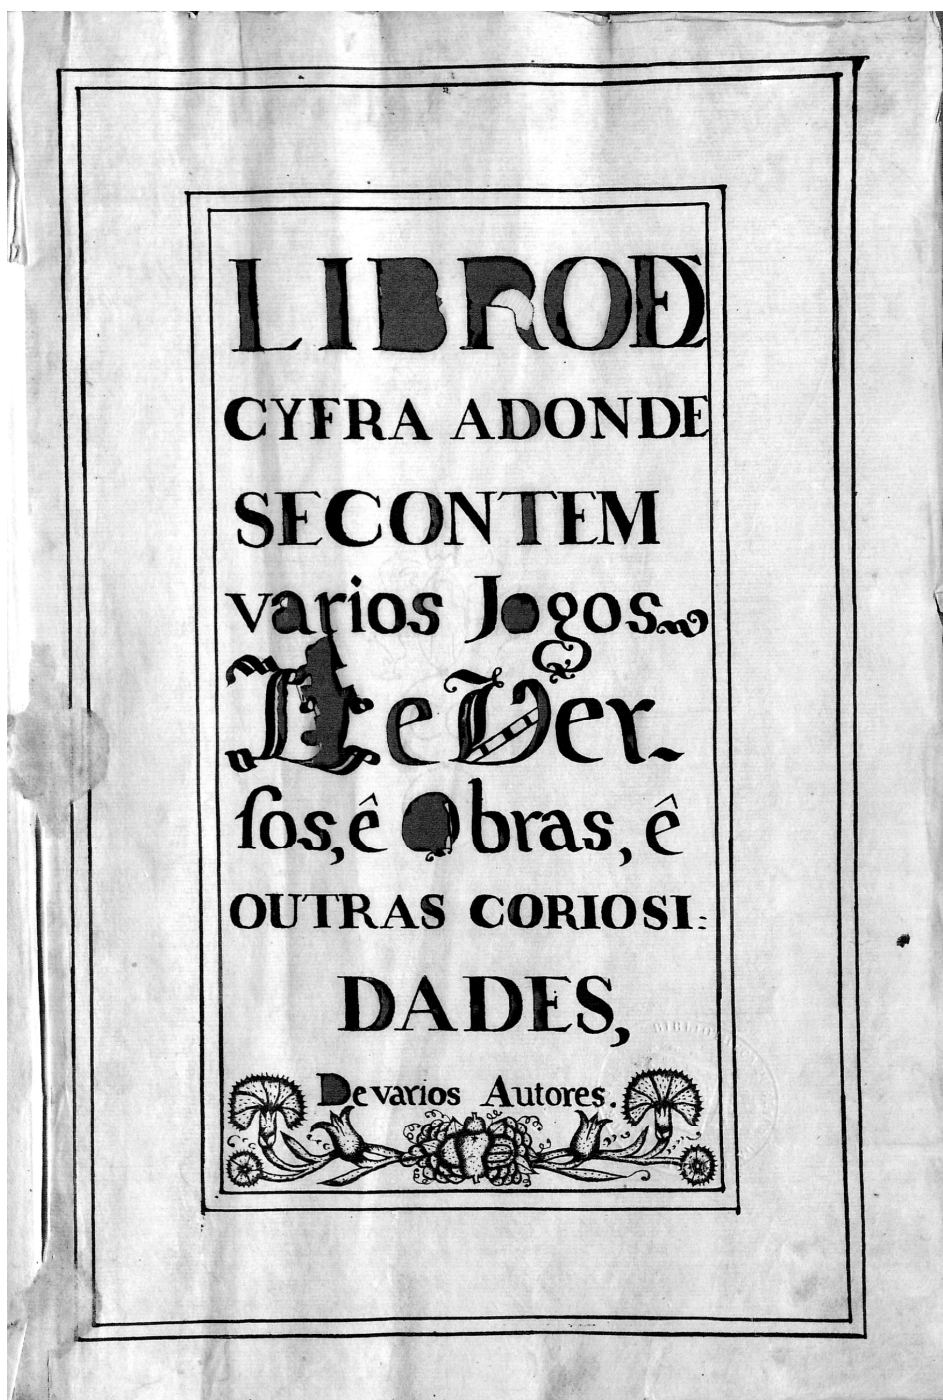 LIBRO DE
CYFRA ADONDE
SECONTEM
varios Jogos
De Ver-
ſos, ê Obras, ê
OUTRAS CORIOSI:
DADES,
De varios Autores.